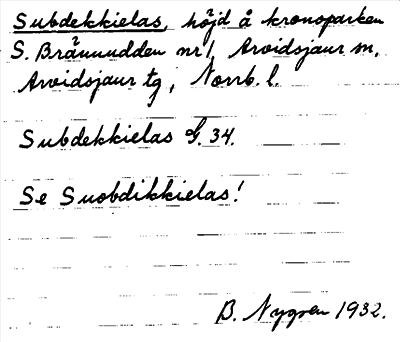 Subdekkielas, höjd å kronoparken
S. Brännudden nr 1, Arvidsjaur sn,
Arvidsjaur tg, Norrb. l.
Subdekkielas G. 34.
Se Suobdikkielas!
B. Nygren 1932.